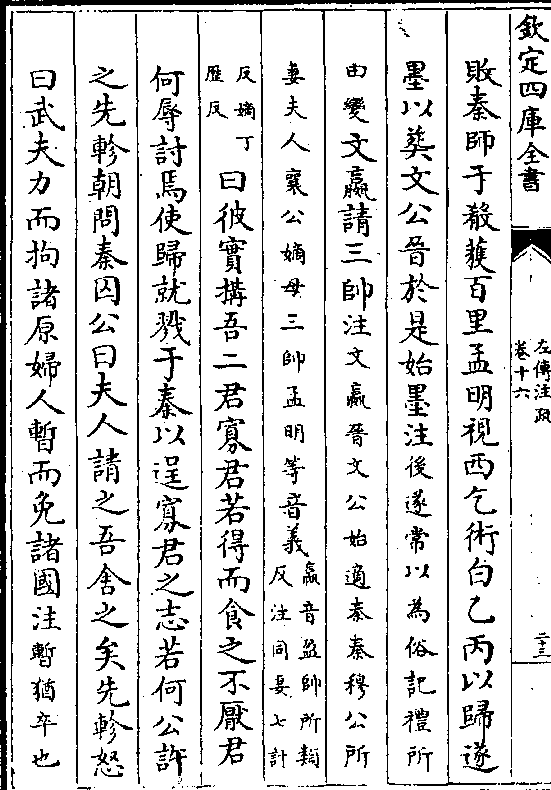 欽定四庫全書
左傳注疏
卷十六
二十三
敗秦師于殽獲百里孟明視西乞術白乙丙以歸遂
墨以葬文公晉於是始墨注後遂常以為俗記禮所
由變文嬴請三帥注文嬴晉文公始適秦秦穆公所
妻夫人襄公嫡母三帥孟明等音義嬴音盈帥所類
反注同妻七計
反嫡丁
歷反曰彼實搆吾二君寡君若得而食之不厭君
何辱討焉使歸就戮于秦以逞寡君之志若何公許
之先軫朝問秦囚公曰夫人請之吾舍之矣先軫怒
曰武夫力而拘諸原婦人暫而免諸國注暫猶卒也